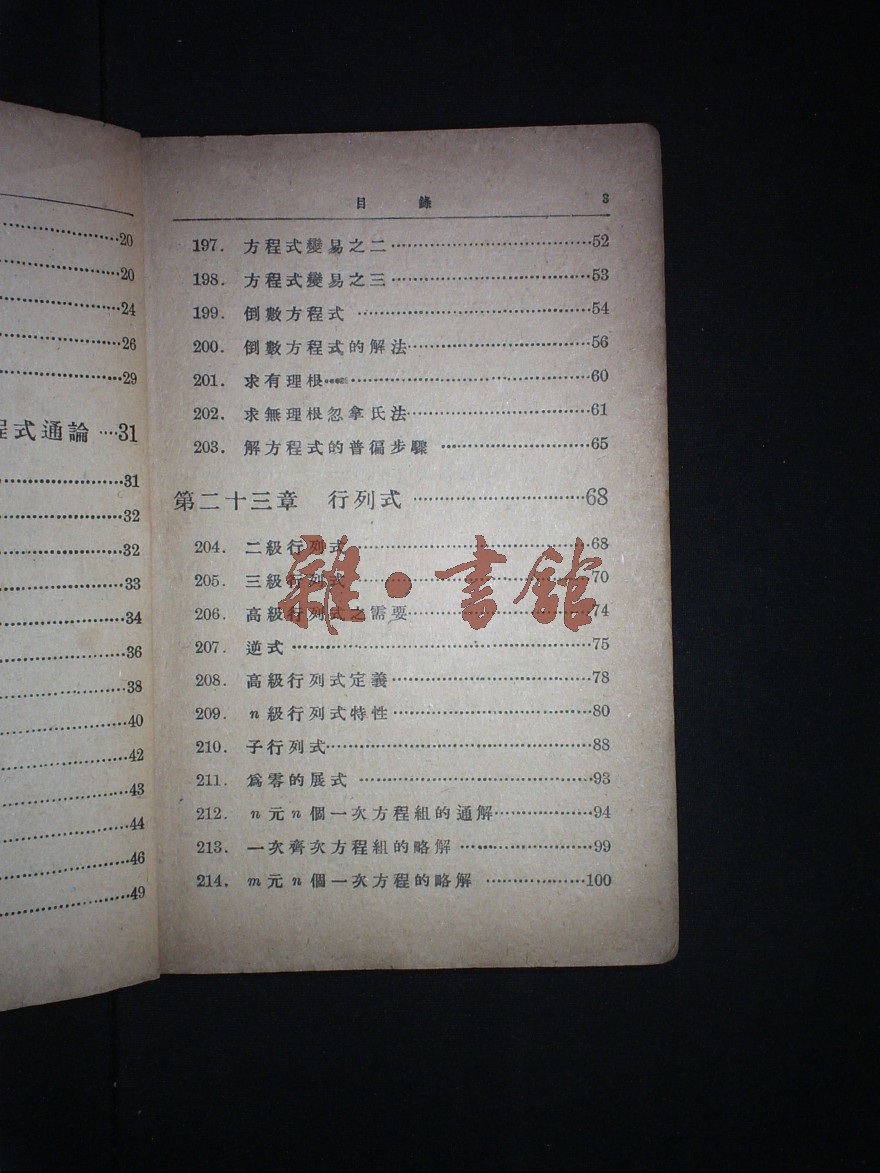 20
20
24
26
29
程式通論 ····31
31
32
32
33
34
36
38
40
42
43
44
46
49
目 錄 3
197. 方程式變易之二 ··· 52
198. 方程式變易之三 ··· 53
199. 倒數方程式 ··· 54
200. 倒數方程式的解法 ··· 56
201. 求有理根 ··· 60
202. 求無理根忽拿氏法 ··· 61
203. 解方程式的普徧步驟 ··· 65
第二十三章 行列式 ··· 68
204. 二級行列式 ··· 68
205. 三級行列式 ··· 70
206. 高級行列式之需要 ··· 74
207. 逆式 ··· 75
208. 高級行列式定義 ··· 78
209. n級行列式特性 ··· 80
210. 子行列式 ··· 88
211. 爲零的展式 ··· 93
212. n元n個一次方程組的通解 ··· 94
213. 一次齊次方程組的略解 ··· 99
214. m元n個一次方程的略解 ··· 100
雜·書館